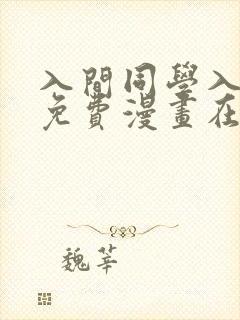 入間同學入
免費漫畫在
魏莘